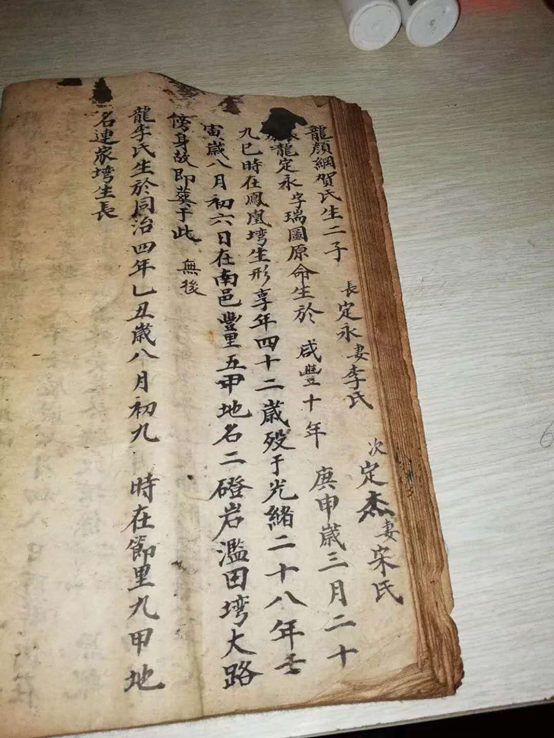 龍顔綱賀氏生二子 長定永妻李氏 次定杰妻宋氏
長龍定永字瑞圖原命生於咸豐十年庚申歲三月二十
九巳時在鳳凰塆生形享年四十二歲殁于光緒二十八年壬
寅歲八月初六日在南邑豐里五甲地名二磴岩濫田塆大路
傍身故即葬于此 無後
龍李氏生於同治四年乙丑歲八月初九 時在節里九甲地
名連家塆生長